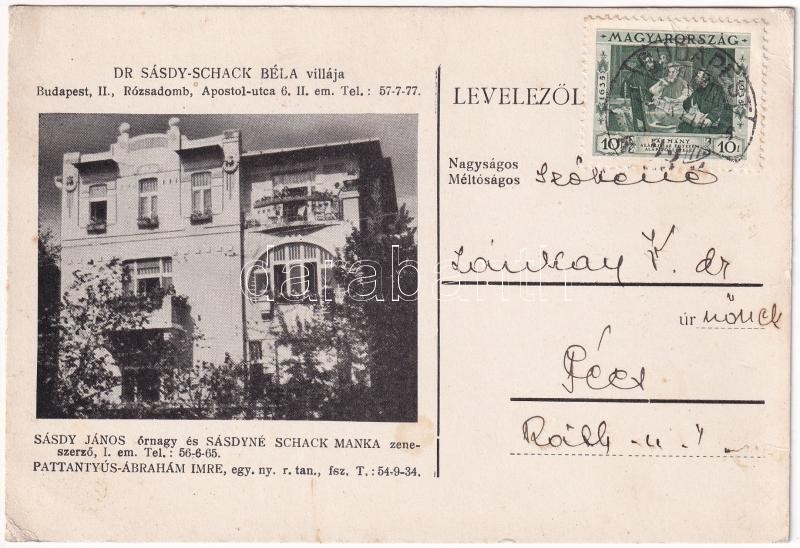 DR SÁSDY-SCHACK BÉLA villája
Budapest, II., Rózsadomb, Apostol-utca 6. II. em. Tel.: 57-7-77.
MAGYARORSZÁG
1635
1935
10f
PÁZMÁNY
10f
BUDAPEST
LEVELEZŐL
Nagyságos
Méltóságos
darabanth
úr nőnek
Pécs
SÁSDY JÁNOS őrnagy és SÁSDYNÉ SCHACK MANKA zene-
szerző, I. em. Tel.: 56-6-65.
PATTANTYÚS-ÁBRAHÁM IMRE, egy. ny. r. tan., fsz. T.: 54-9-34.